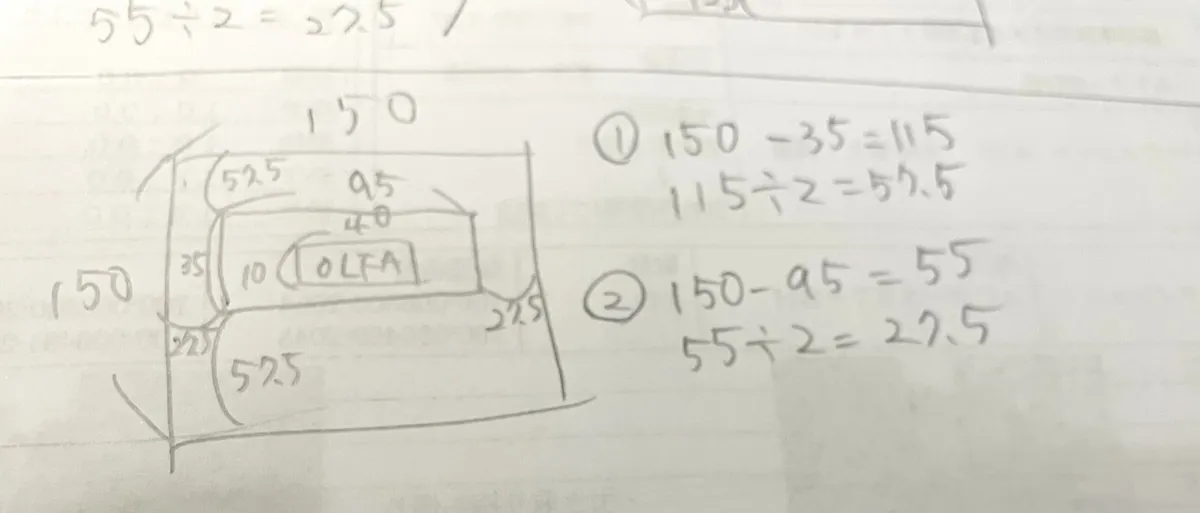 55÷2=27.5
150
57.5
95
40
35
10
OLFA
150
27.5
27.5
57.5
① 150-35=115
115÷2=57.5
② 150-95=55
55÷2=27.5